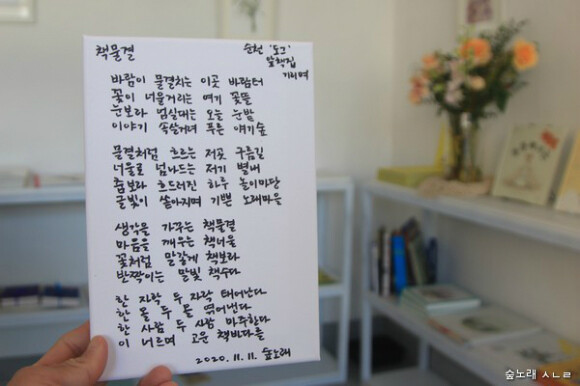 책물결
순천 '도그'
말책집
기리며
바람이 물결치는 이곳 바람터
꽃이 너울거리는 여기 꽃뜰
눈보라 넘실대는 오늘 눈밭
이야기 속살거려 푸른 얘기숲
물결처럼 흐르는 저곳 구름길
너울로 넘나드는 저기 별내
춤보라 흐드러진 하루 놀이마당
글빛이 쏟아지며 기쁜 노래마을
생각을 가꾸는 책물결
마음을 깨우는 책너울
꽃처럼 맑갛게 책보라
반짝이는 말빛 책수다
한 자락 두 자락 태어난다
한 올 두 올 엮어낸다
한 사람 두 사람 마주한다
이 너르며 고운 책바다를
2020. 11. 11. 숲노래
숲노래 ㅅㄴㄹ